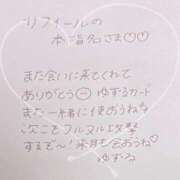 リフィールの
本指名さま♡♡
また会いに来てくれて
ありがとう ゆずるカード
また一緒に使おうね
次こそフルヌル攻撃
するぞ〜! 来月も会おうね♡
ゆずる